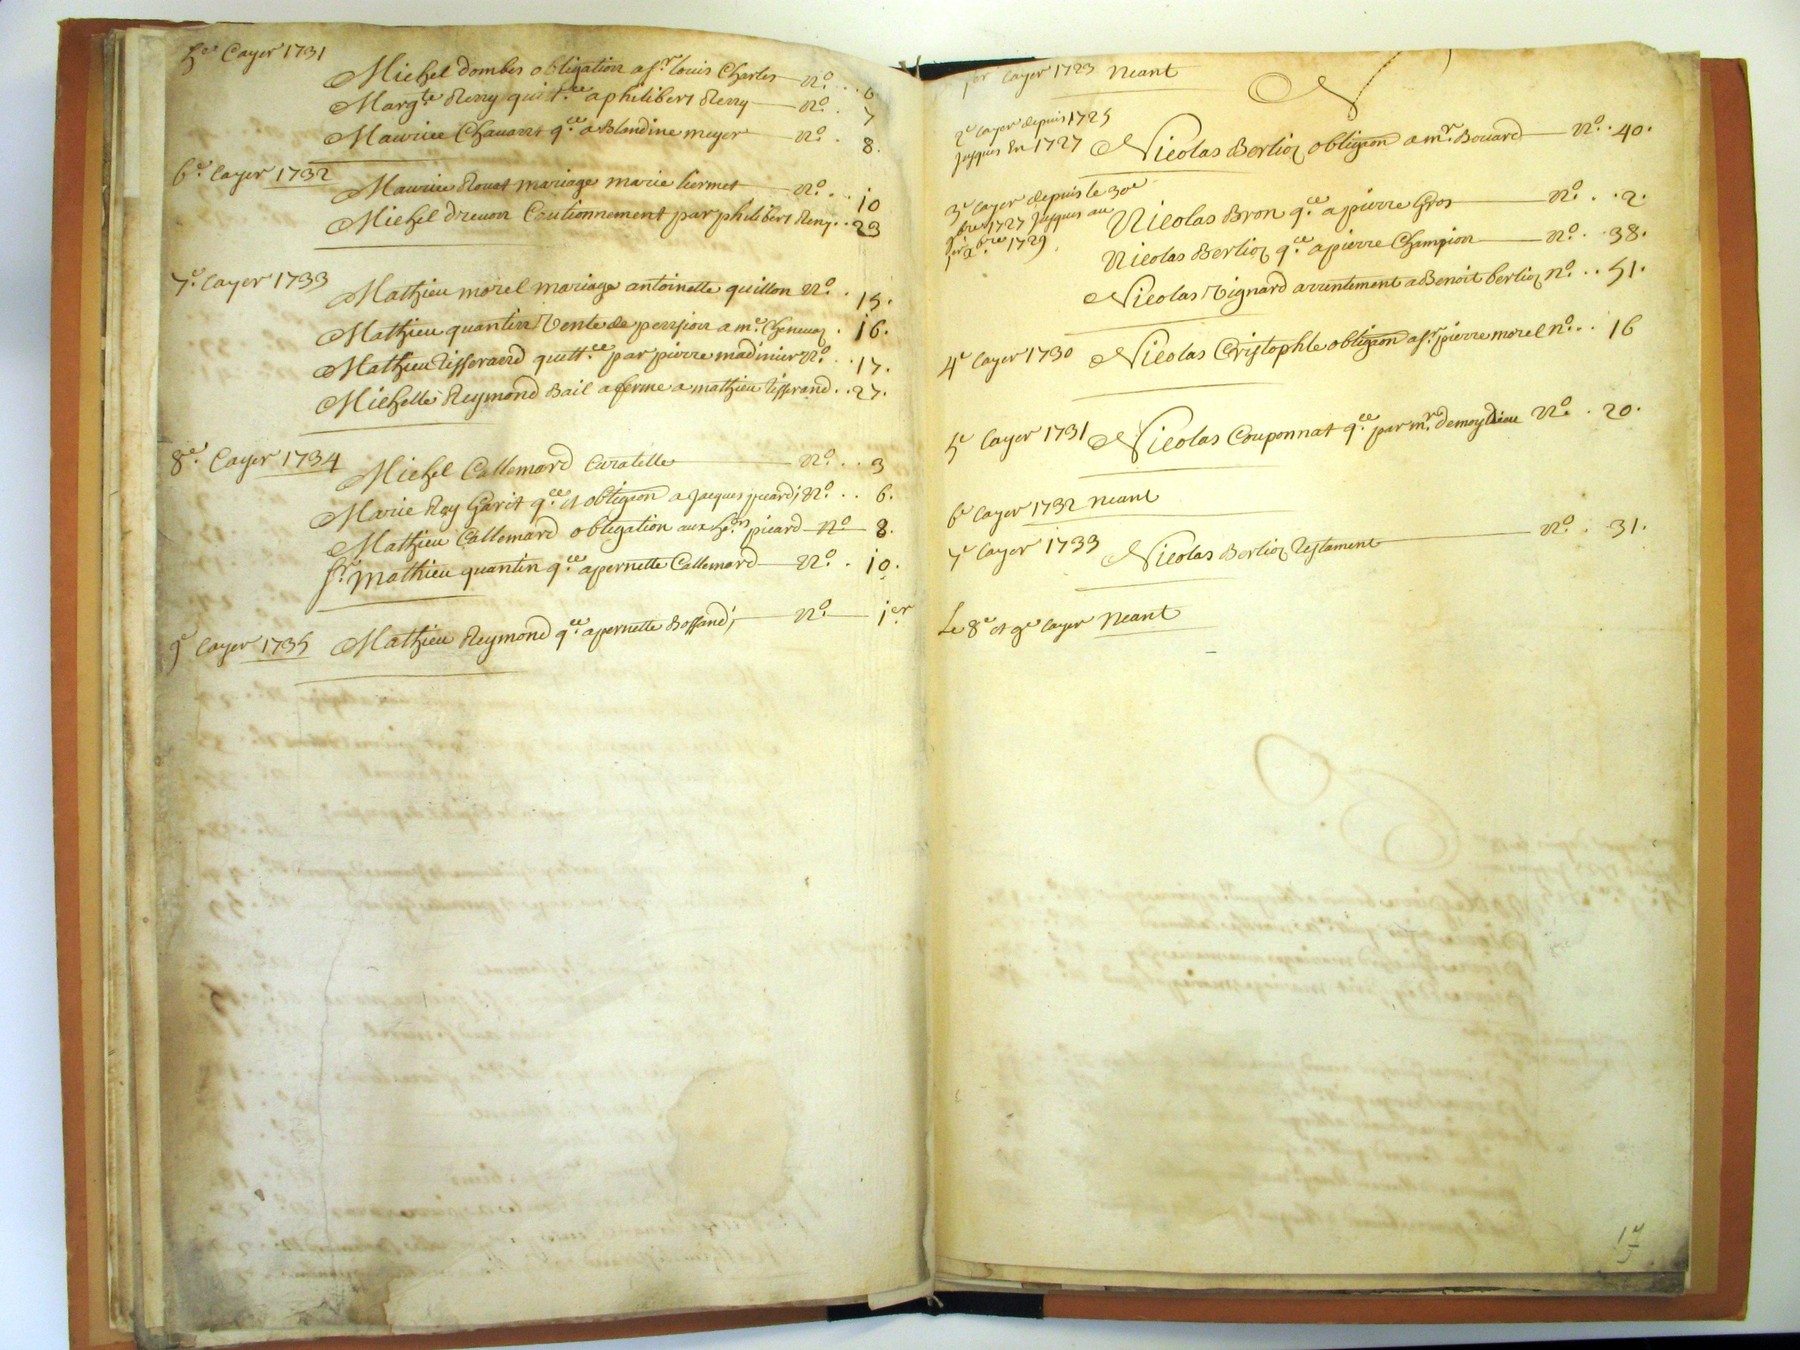 5e Cayer 1731
Michel dombes obligation a sr. louis Charles n°. . . 6
Margte Remy quitt.ce a philibert Remy n°. . 7
Maurice Chavant q.ce a Blandine meyer n°. . 8.
6e. Cayer 1732
Maurice Rouat mariage marie hermet n°. . . 10
Michel drevon Cautionnement par philibert Remy . . 23
7e. Cayer 1733
Mathieu morel mariage antoinette quillon n°. . 15.
Mathieu quantin Vente de pension a me. Chenevaz . 16.
Mathieu tisserand quitt.ce par pierre madinier n°. . . 17.
Michelle Reymond Bail a ferme a mathieu tisserand . . 27.
8e. Cayer 1734
Michel Callemard Curatelle n°. . . 3
Marie Roy Garit q.ce et obligaon a Jacques picard n°. . . 6.
Mathieu Callemard obligation aux picard n° 8.
Sr. Mathieu quantin q.ce a pernette Callemard n°. . 10.
9e Cayer 1735 Mathieu Reymond q.ce a pernette Boffand n°. 1er
1er Cayer 1723 Neant
N
2e Cayer depuis 1725
Jusques En 1727
Nicolas Berlioz obligaon a mr. Bouard n°. . 40.
3e Cayer depuis le 30e
9bre 1727 Jusques au
1er Xbre 1729.
Nicolas Bron q.ce a pierre Gros n°. . . 2.
Nicolas Berlioz q.ce a pierre Champion n°. . . 38.
Nicolas Vignard arrentement a Benoit berlioz n°. . . 51.
4e Cayer 1730 Nicolas Cristophle obligaon a sr. pierre morel n°. . . 16
5e Cayer 1731 Nicolas Couponnat q.ce par mr. demoydieu n°. . 20.
6e Cayer 1732 Neant
7e Cayer 1733 Nicolas Berlioz Testament n°. . 31.
Le 8e et 9e Cayer Neant